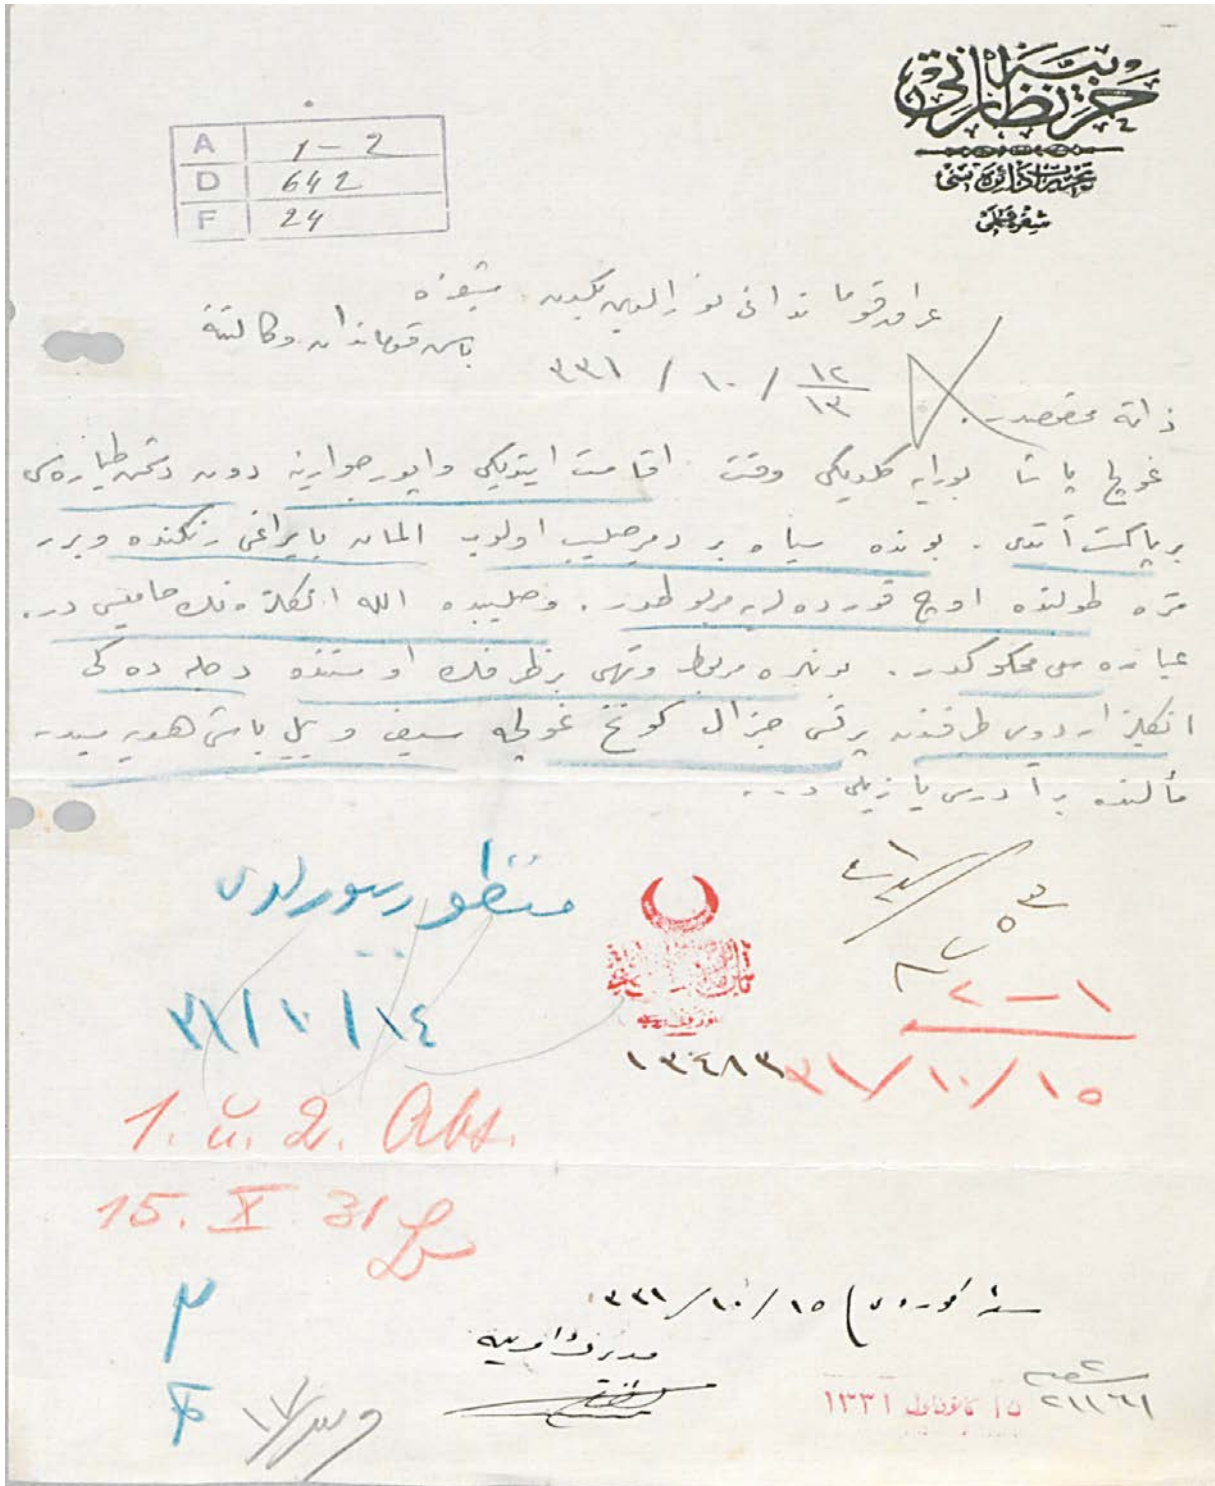 حربیه نظارتی
تحریرات دائره‌سی
شفره قلمی
A 1-2
D 642
F 24
عراق قوماندانی نورالدین بكدن شفره
باش قوماندان وكالتنه
١٢/١٣ / ١٠ / ٣٣١
ذاته مخصوصدر.
غولچ پاشا بورایه كلدیكی وقت اقامت ایتدیكی واپور جوارینه دون دشمن طیاره‌سی
بر پاكت آتدی. بونده سیاه بر دمیر صلیب اولوب المان بایراغی رنكنده و بر
متره طولنده اوچ قوردەله مربوطدر. وصلیبده الله انكلتره‌نك حامیسی در.
عباره‌سی محكوكدر. بونلره مربوط وتهی بر ظرفك اوستنده دجله ده كی
انكلیز اردوسی طرفندن پرنس جنرال فون غولچه سیف و بیل باشی هدیه سیدر
مألنده بر آدرس یازیلی در.
منظور بیورلدی
١٤/١٠/٣١
١-٢
١٥/١٠/٣١
١٣٤٨٣
1. u. 2. Abt.
15. X. 31
١٥/١٠/٣٣١
٢١١٦١
١٥ كانون اول ١٣٣١
١٧